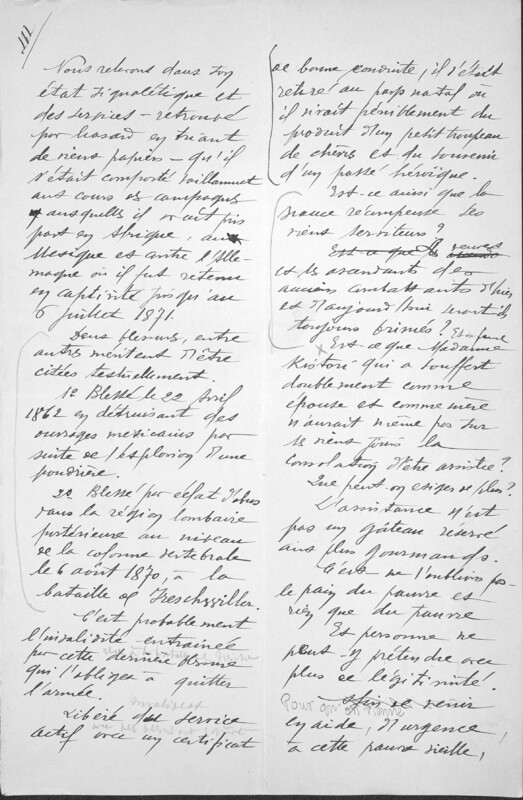 III
Nous relevons dans son
état signalétique et
des services - retrouvé
par hasard en triant
de vieux papiers - qu'il
s'était comporté vaillamment
aux cours des campagnes
auxquelles il avait pris
part en Afrique, au
Mexique et contre l'Alle-
magne où il fut retenu
en captivité jusqu'au
6 juillet 1871.
Deux blessures, entre
autres méritent d'être
citées textuellement.
1° Blessé le 22 Avril
1862 en détruisant des
ouvrages mexicains par
suite de l'explosion d'une
poudrière.
2° Blessé par éclat d'obus
dans la région lombaire
postérieure au niveau
de la colonne vertébrale
le 6 août 1870, à la
bataille de Freschwiller.
C'est probablement
l'invalidité entraînée
par cette dernière blessure
qui l'obligea à quitter
l'armée.
Libéré du service
actif avec un certificat
de bonne conduite, il s'était
retiré au pays natal où
il vivait péniblement du
produit d'un petit troupeau
de chèvres et du souvenir
d'un passé héroïque.
Est-ce ainsi que la
France récompense ses
vieux serviteurs ?
Est-ce que les veuves
et les ascendants des
anciens combattants d'hier
et d'aujourd'hui seront-ils
toujours brimés ?
Est-ce que Madame
Ristori qui a souffert
doublement comme
épouse et comme mère
n'aurait même pas sur
ses vieux jours la
consolation d'être assistée ?
Que peut-on exiger de plus ?
L'assistance n'est
pas un gâteau réservé
aux plus gourmands.
C'est ne l'oublions pas
le pain du pauvre et
rien que du pauvre
Et personne ne
peut y prétendre avec
plus de légitimité.
Pour qu'on vienne
en aide, d'urgence,
à cette pauvre vieille,